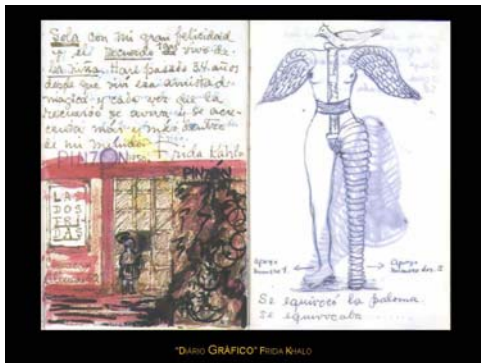 Sola con mi gran felicidad
y el recuerdo vivo de
la niña. Han pasado 34 años
desde que viví esa amistad
mágica y cada vez que la
recuerdo se aviva y se acre-
cienta más y más dentro
de mi mundo.
PINZÓN Frida Kahlo
PINZÓN
LAS
DOS
FRI
DAS
Apoyo
número 1.
Apoyo
número dos. 2
Se equivocó la paloma.
Se equivocaba
"DIÁRIO GRÁFICO" FRIDA KHALO